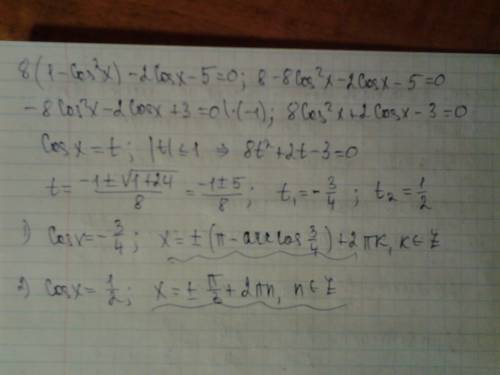 8(1-cos²x)-2cosx-5=0; 8-8cos²x-2cosx-5=0
-8cos²x-2cosx+3=0|·(-1); 8cos²x+2cosx-3=0
cosx=t; |t|≤1 ⇒ 8t²+2t-3=0
t=(-1±√(1+24))/8=(-1±5)/8; t₁=-3/4; t₂=1/2
1) cosx=-3/4; x=±(π-arccos 3/4)+2πk, k∈Z
2) cosx=1/2; x=±π/3+2πn, n∈Z